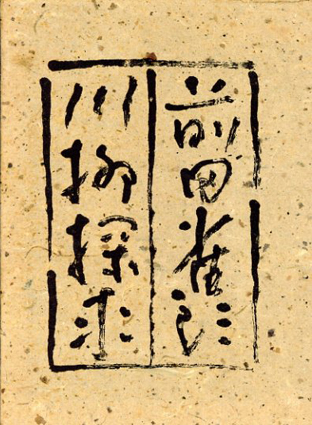 前田雀郎
川柳探求